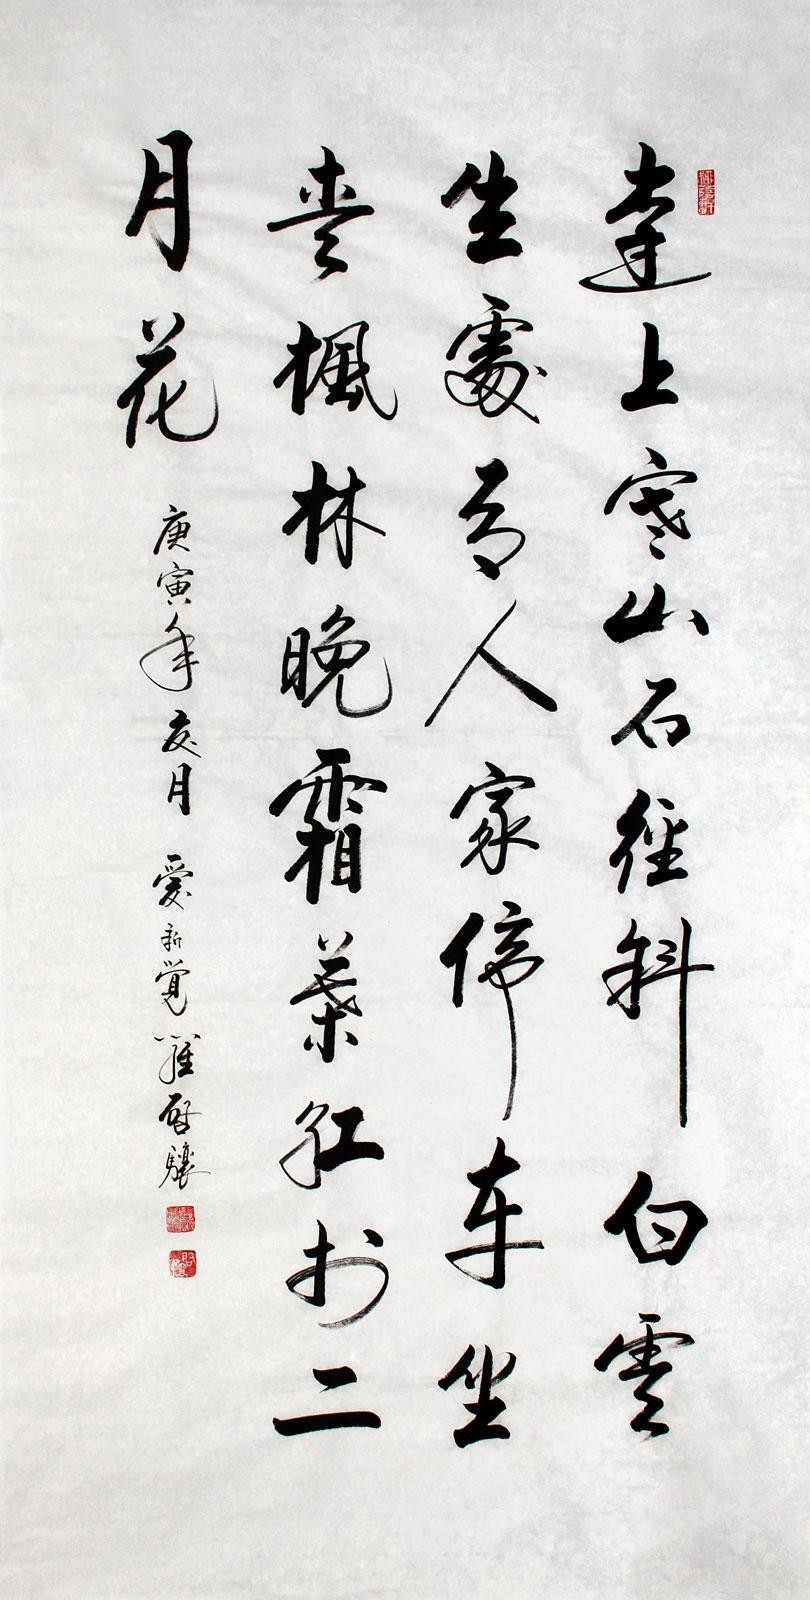 遠上寒山石徑斜白雲
生處有人家停车坐
愛楓林晚霜葉紅於二
月花
庚寅年夏月 愛新覺羅啓驤